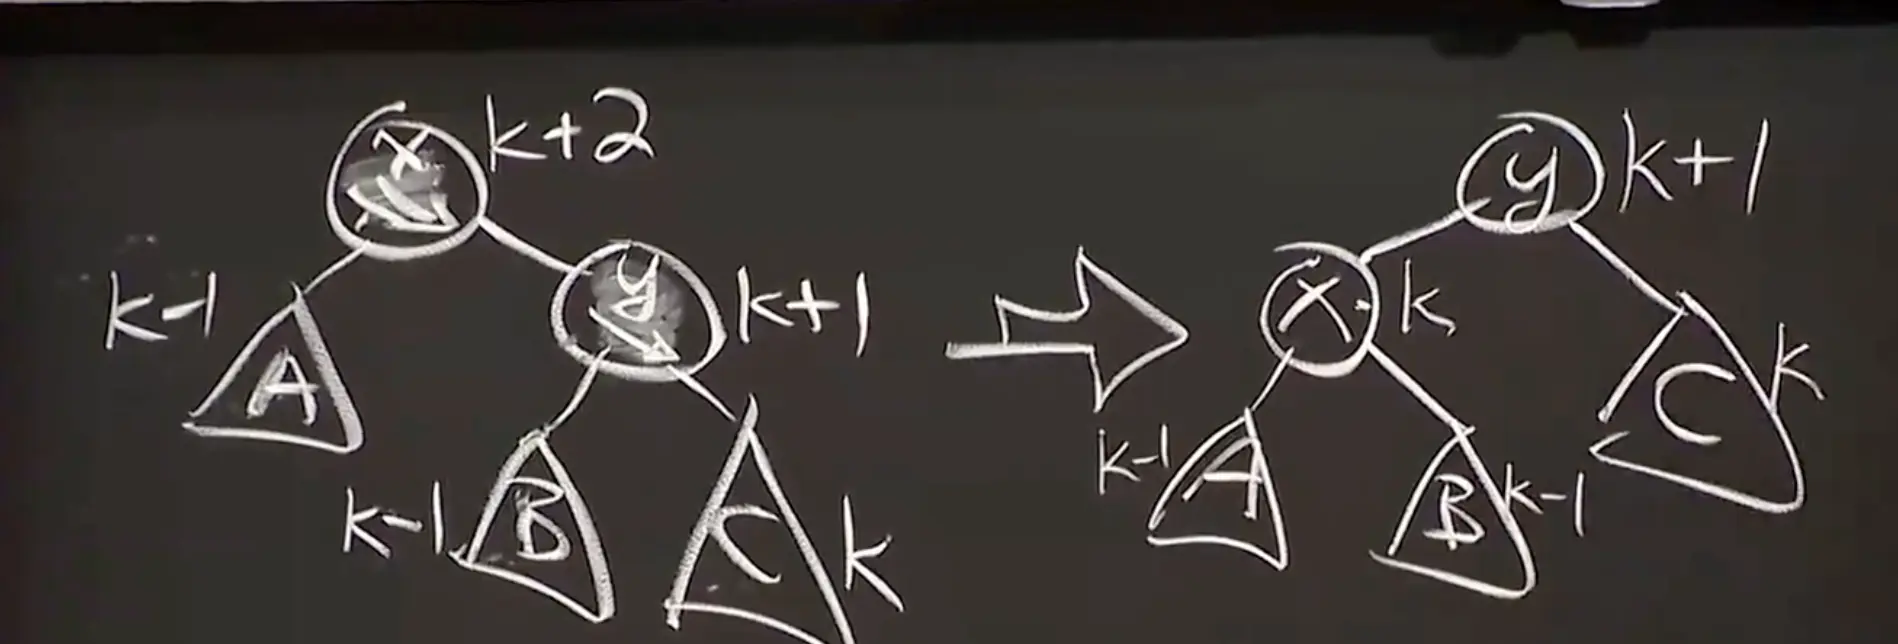 x k+2
y k+1
k-1 A
k-1 B
C k
y k+1
x k
k-1 A
B k-1
C k